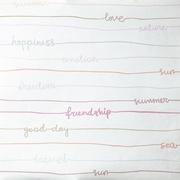 summer
love
nature
happiness
emotion
sun
freedom
summer
friendship
good day
sea
sun